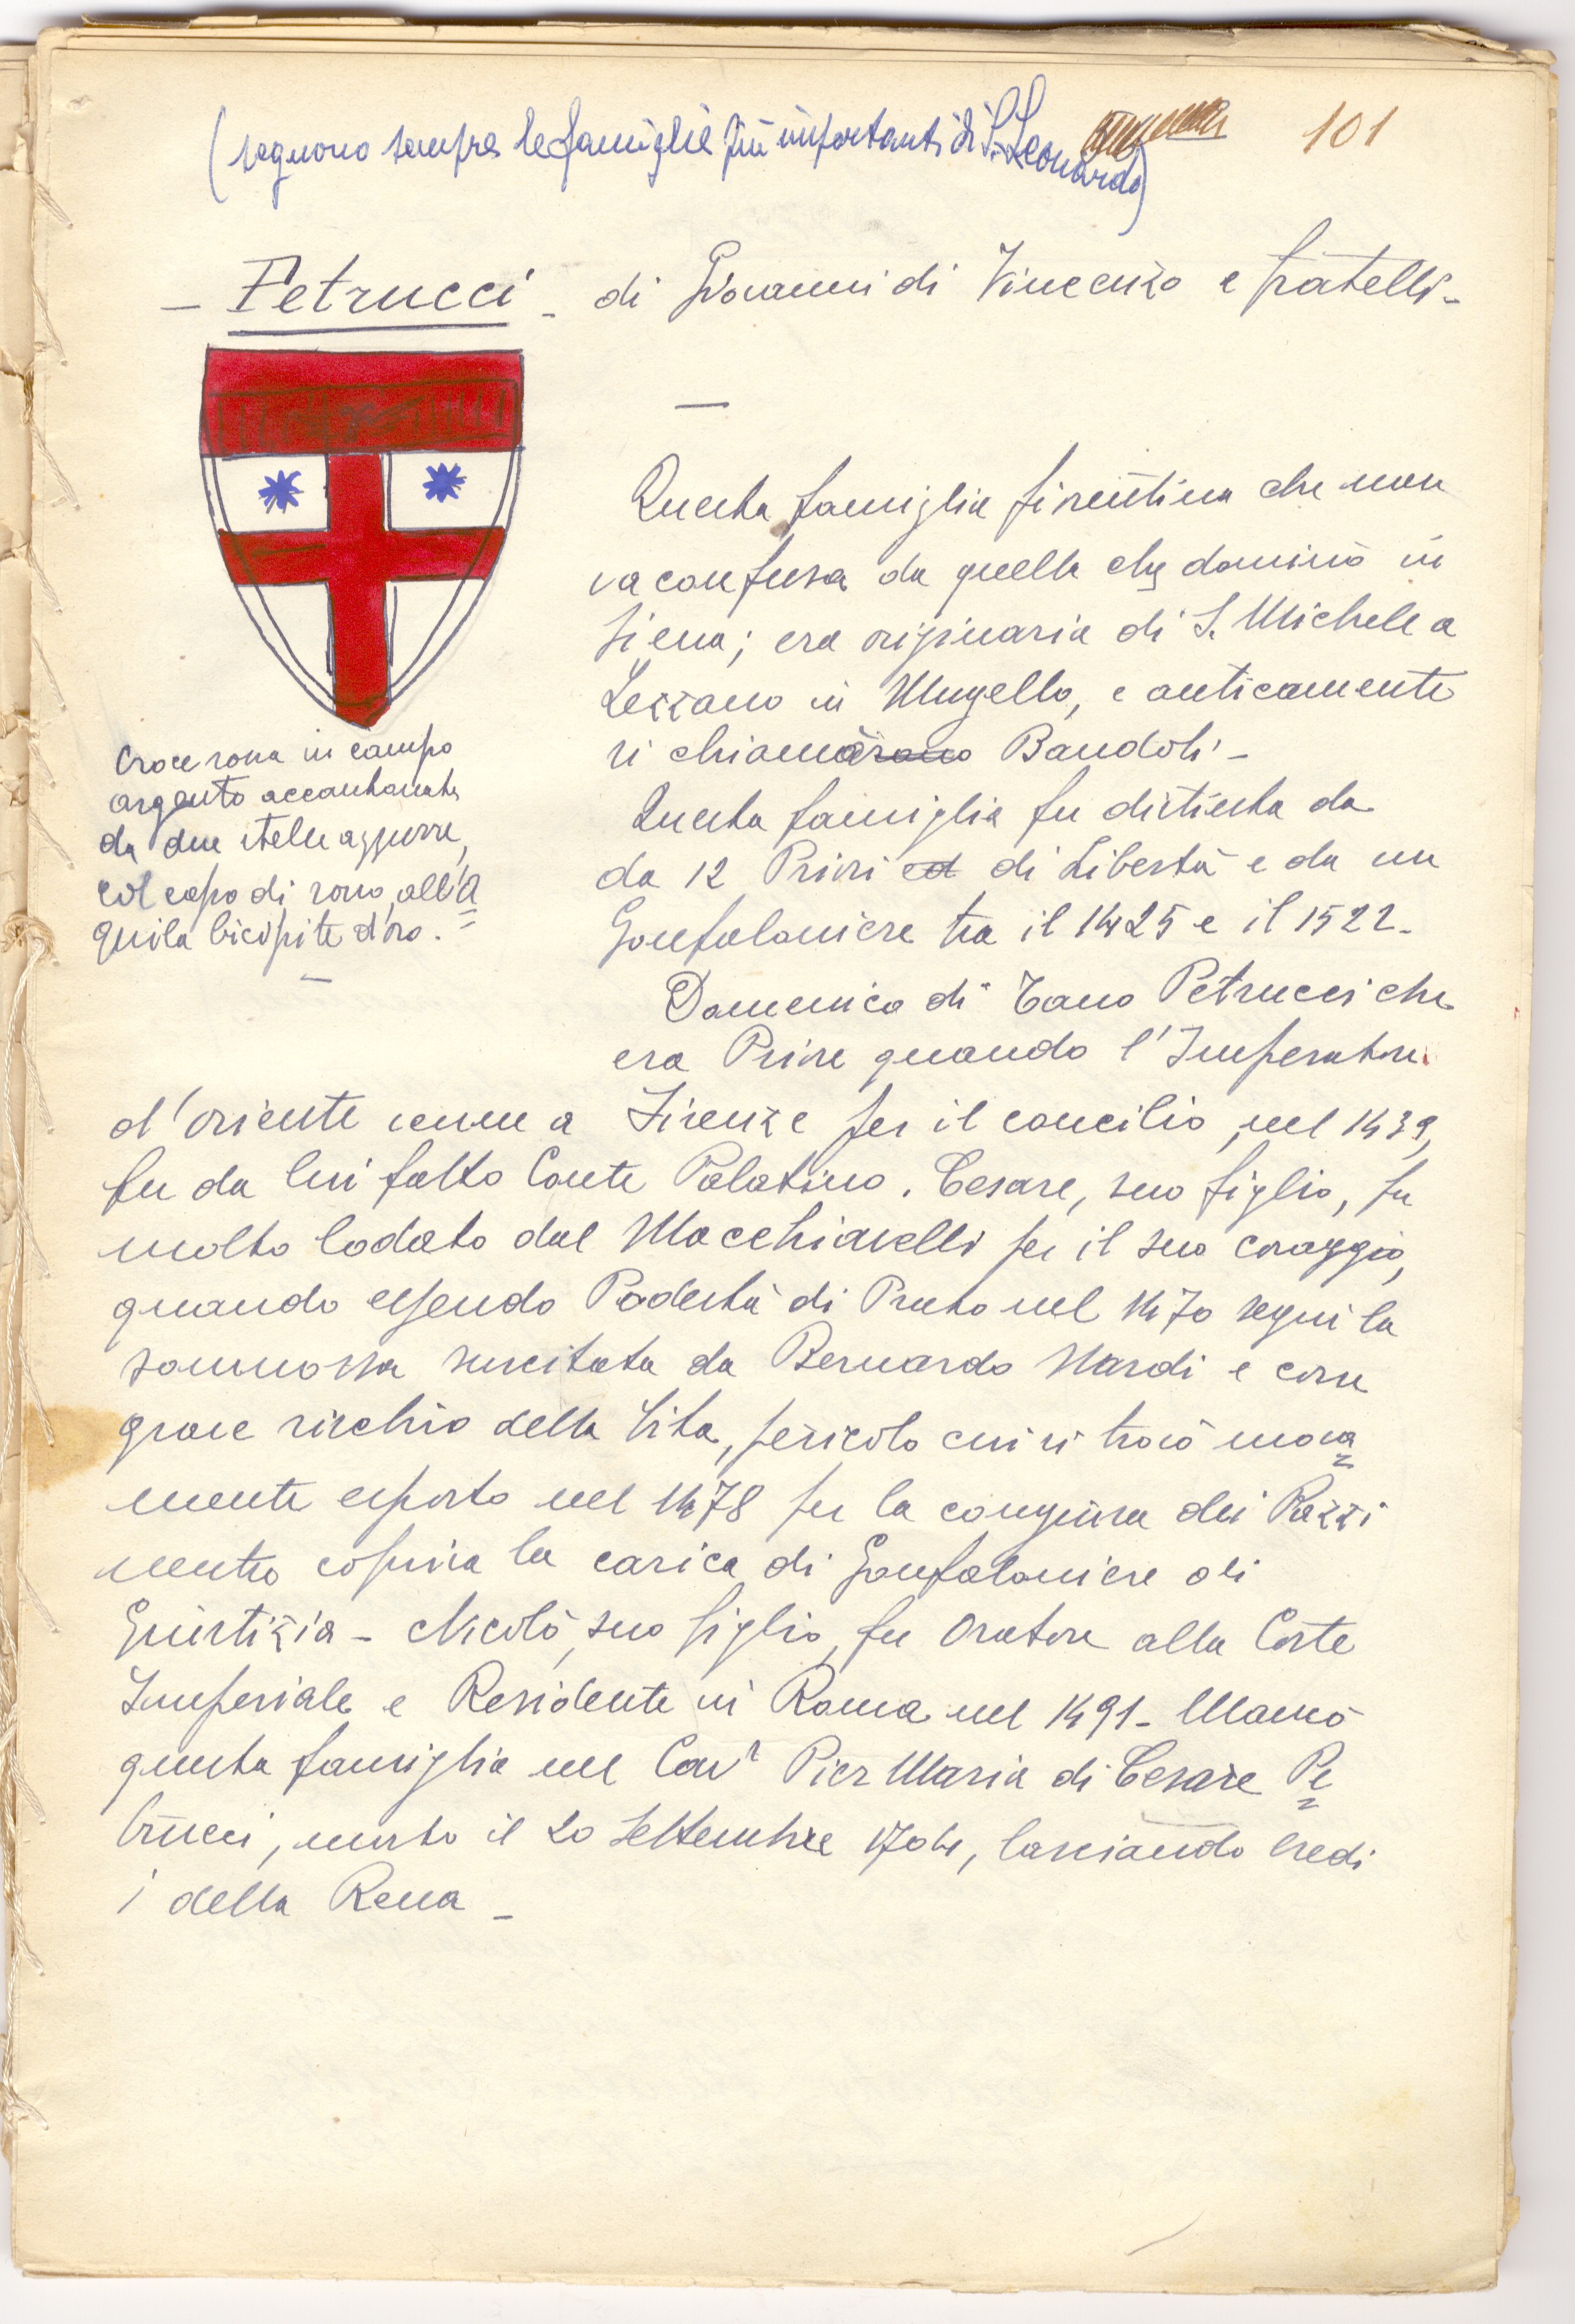 (seguono sempre le famiglie più importanti di S. Leonardo)
101
- Petrucci - di Giovanni di Vincenzo e fratelli -
Questa famiglia fiorentina che non
va confusa da quella che dominò in
Siena; era originaria di S. Michele a
Lezzano in Mugello, e anticamente
si chiamò Bandoli -
Questa famiglia fu distinta da
da 12 Priori di Libertà e da un
Gonfaloniere tra il 1425 e il 1522 -
Domenico di Tano Petrucci che
era Priore quando l'Imperatore
d'oriente venne a Firenze per il concilio, nel 1439,
fu da lui fatto Conte Palatino. Cesare, suo figlio, fu
molto lodato dal Macchiavelli per il suo coraggio,
quando essendo Podestà di Prato nel 1470 seguì la
sommossa suscitata da Bernardo Nardi e corse
grave rischio della Vita, pericolo cui si trovò nova
mente esposto nel 1478 per la congiura dei Pazzi
mentre copriva la carica di Gonfaloniere di
Giustizia - Nicolò, suo figlio, fu Oratore alla Corte
Imperiale e Residente in Roma nel 1491 - Mancò
questa famiglia nel Cavr Pier Maria di Cesare Pe
trucci, morto il 20 Settembre 1704, lasciando eredi
i della Rena -
Croce rossa in campo
argento accantonata
da due stelle azzurre,
col capo di rosso, all'a
quila bicipite d'oro. -